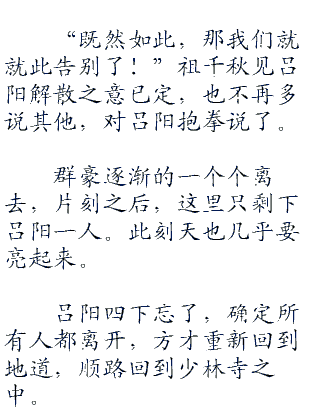 “既然如此，那我们就
就此告别了！”祖千秋见吕
阳解散之意已定，也不再多
说其他，对吕阳抱拳说了。
群豪逐渐的一个个离
去，片刻之后，这里只剩下
吕阳一人。此刻天也几乎要
亮起来。
吕阳四下忘了，确定所
有人都离开，方才重新回到
地道，顺路回到少林寺之
中。